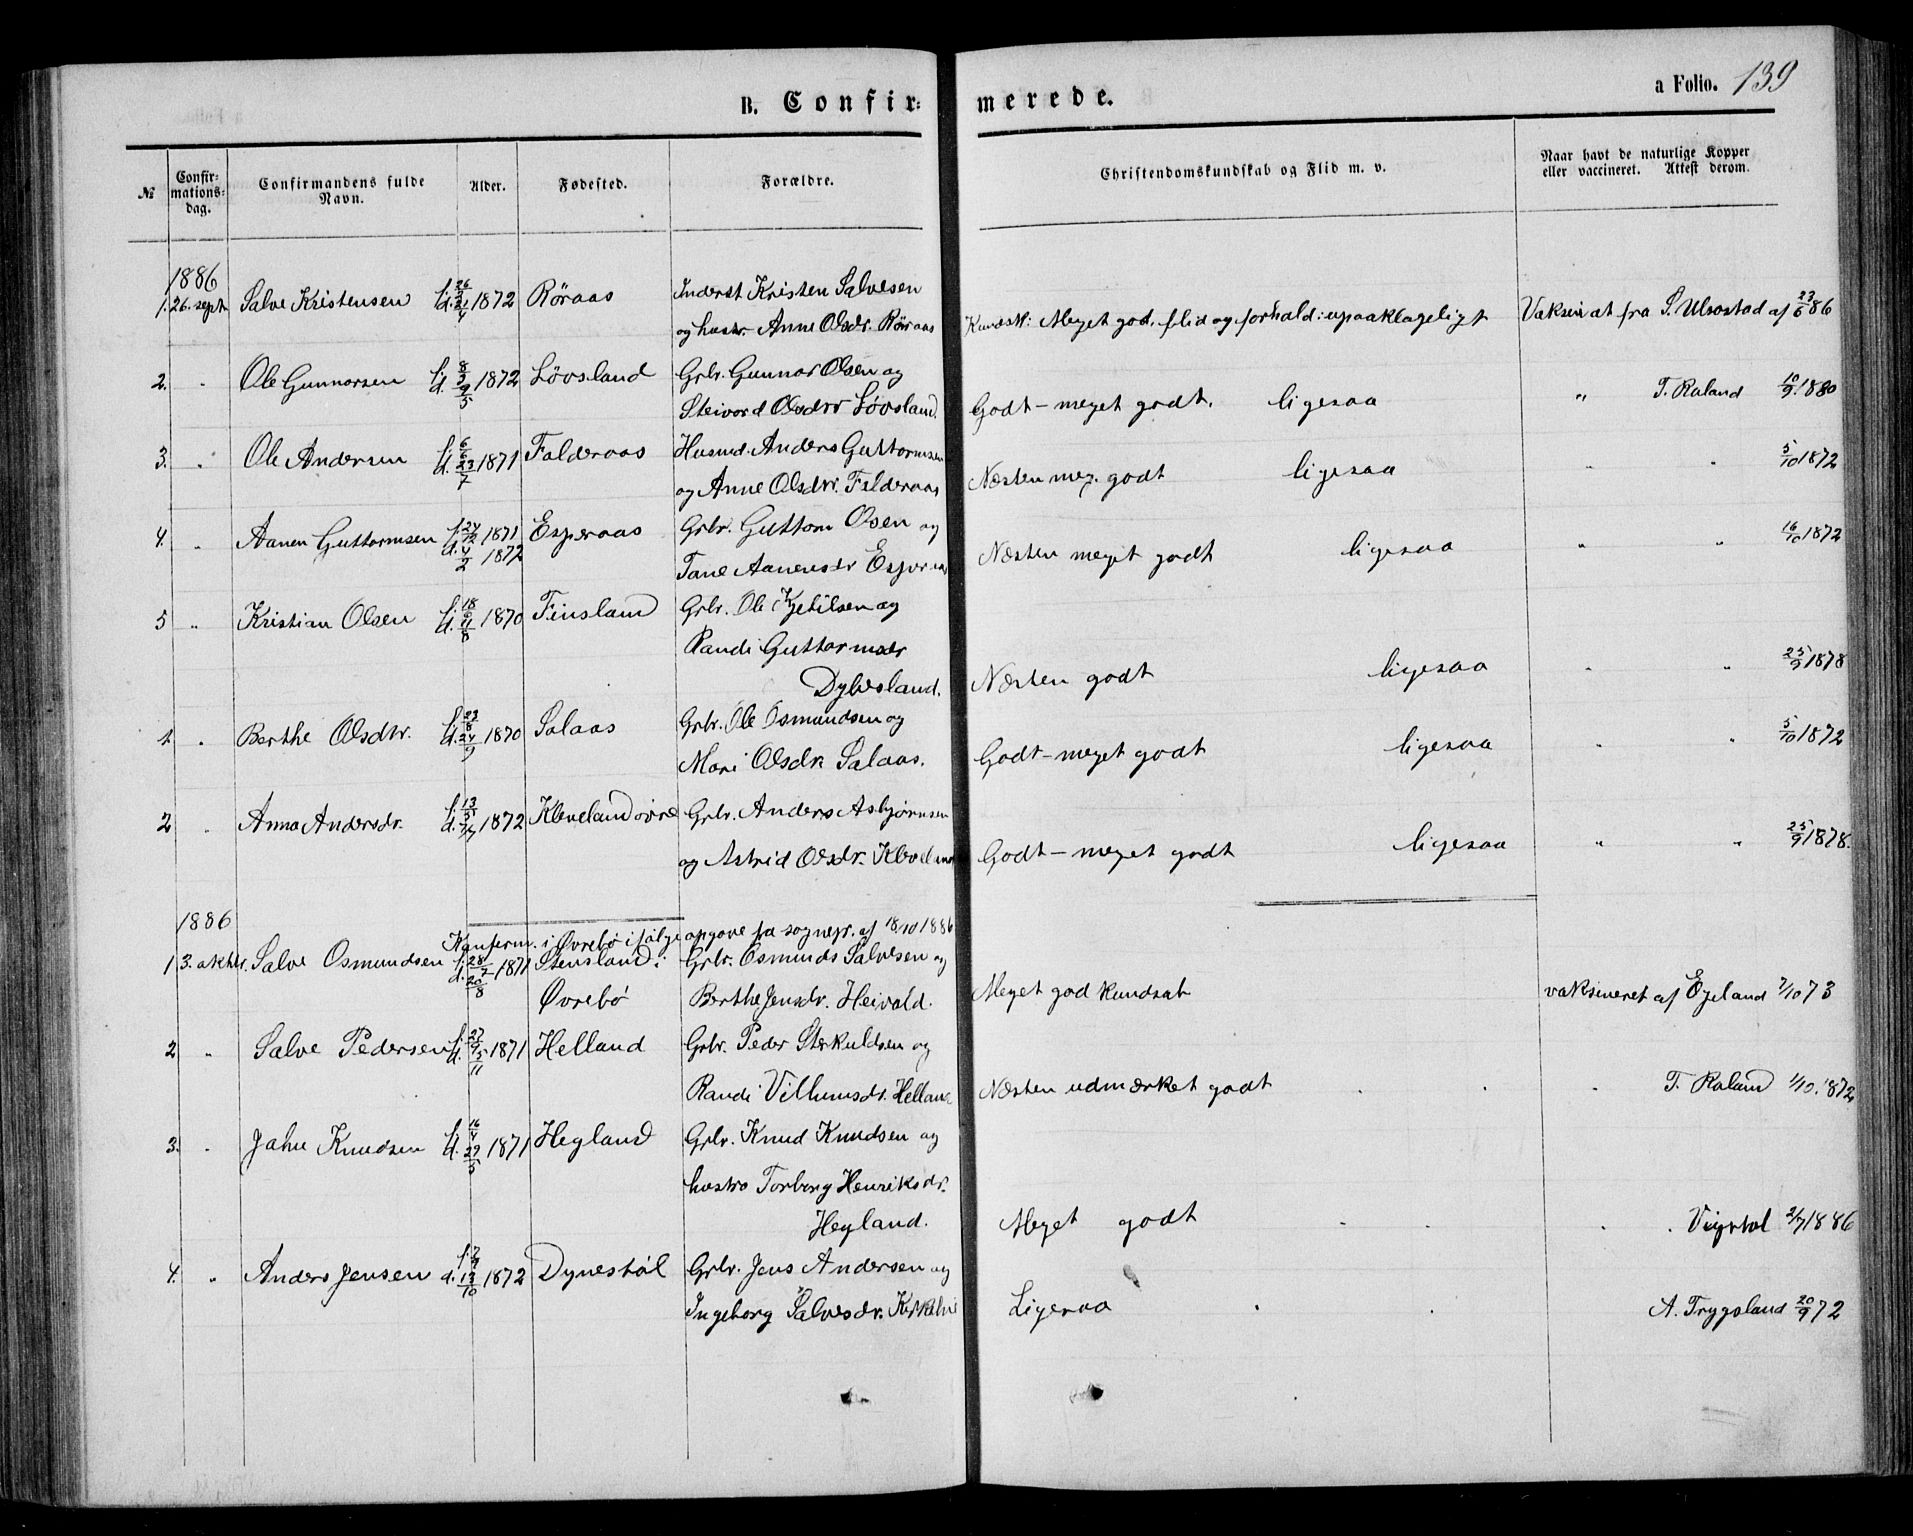 B. Confir-
merede.
a Folio. 139
№
Confir-
mations-
dag.
Confirmandens fulde
Navn.
Alder.
Fødested.
Forældre.
Christendomskundskab og Flid m. v.
Naar havt de naturlige Kopper
eller vaccineret. Attest derom.
1886
1. 26. sept. Salve Kristensen f. 1872 Röraas Inderst Kristen Salvesen
og hustr. Anne Olsdr. Röraas Kundsk: Meget god, flid og forhold: upaaklageligt Vaksinat fra S. Ulvostad af 86
2. " Ole Gunnarsen f. 8/3 d. 9/5 1872 Lövsland Grbr. Gunnar Olsen og
Steivord Olsdtr Lövsland. Godt – meget godt. ligesaa " T. Røland 10/9 1880
3. " Ole Andersen f. 6/6 d. 23/7 1871 Falderaas Husmd. Anders Guttormsen
og Anne Olsdtr. Falderaas Næsten meg. godt ligesaa " " 5/10 1872
4. " Aanen Guttormsen f. 24/12 1871 Esperaas Grbr. Guttorm Olsen og
d. 4/2 1872 Tane Aanensdr Esperaas Næsten meget godt ligesaa " " 16/10 1872
5 " Kristian Olsen f. 18/6 d. 11/8 1870 Finsland Grbr. Ole Kjetilsen og
Randi Guttormsdr
Dyblesland. Næsten godt ligesaa " " 25/9 1878
1. " Berthe Olsdtr. f. 23/8 d. 24/9 1870 Salaas Grbr. Ole Osmundsen og
Mari Olsdr. Salaas. Godt – meget godt ligesaa " " 5/10 1872
2 " Anna Andersdr. f. 13/5 d. 1872 Kleveland övre Grbr. Anders Asbjørnsen
og Astrid Olsdr. Kleveland Godt – meget godt ligesaa " " 25/9 1878.
1886
Konferm. i Øvrebö ifölge opgave fra sognepr. af 18/10 1886
1 3. oktbr. Salve Osmundsen f. 28/7 d. 20/8 1871 Stensland i Grbr. Osmund Salvesen og
Øvrebö Berthe Jensdr. Heivold. Meget god kundsk vaksineret af Egeland 7/10 73
2 " Salve Pedersen f. 27/9 d. 5/11 1871 Helland Grbr. Peder Sterkuldsen og
Randi Vilhumsdr. Helland Næsten udmærket godt " T. Røland 1/10. 1872
3. " Jahn Knudsen f. 16/4 d. 29/5 1871 Heyland Grbr. Knud Knudsen og
hustro Torborg Henriksdr.
Heyland. Meget godt " Vigstol 2/7 1886
4. " Anders Jensen f. d. 13/10 1872 Dynestöl Grbr. Jens Andersen og
Ingeborg Salvesdr. Ligesaa A. Trygsland 20/9 72